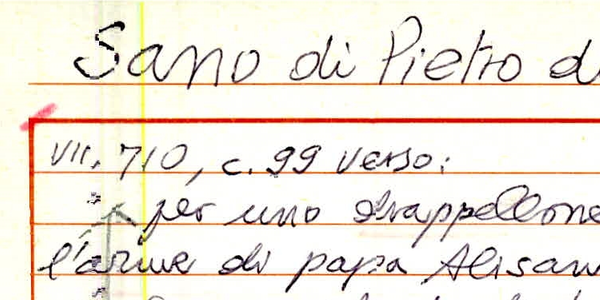 Sano di Pietro d
VII. 710, c. 99 verso:
per uno drappellone
l'arme di papa Alisan